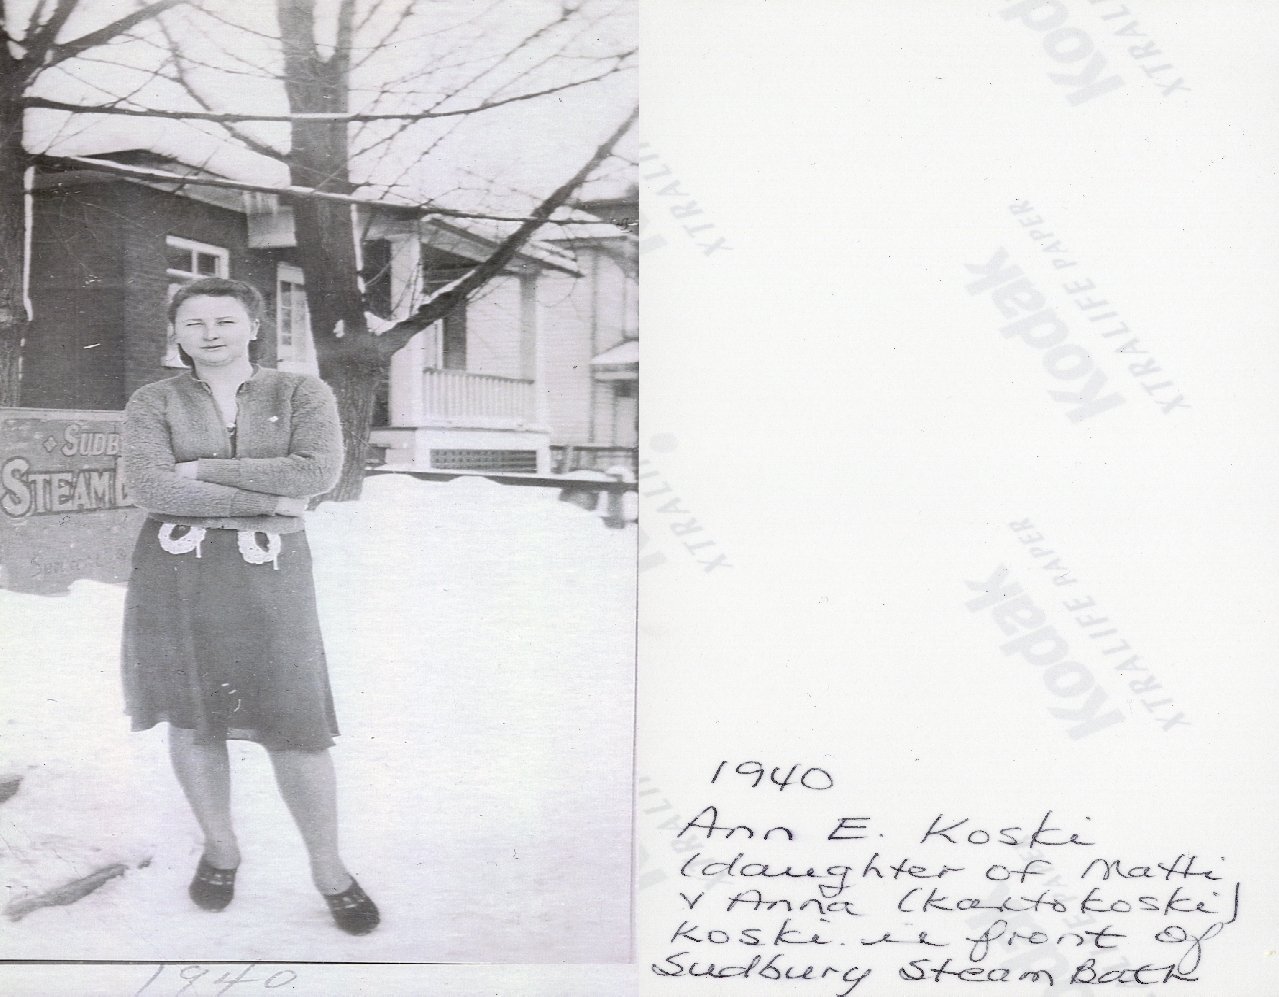 SUDB
STEAM
1940
Kodak
XTRALIFE PAPER
Kodak
XTRALIFE PAPER
Kodak
XTRALIFE PAPER
XTRALIFE
XTRALIFE
1940
Ann E. Koski
(daughter of Matti
& Anna (Kautokoski)
Koski. in front of
Sudbury Steam Bath